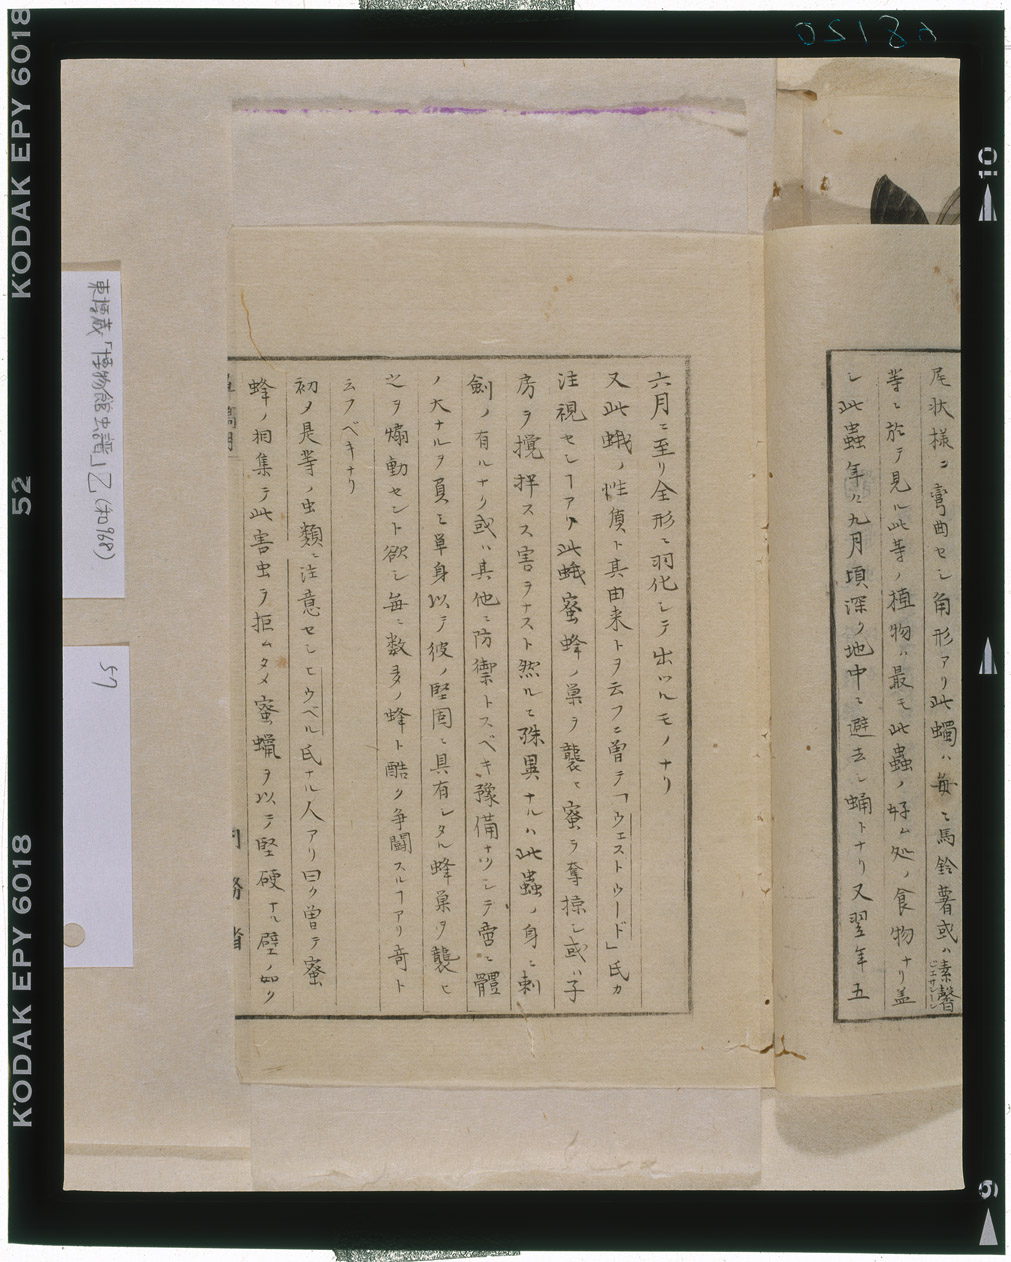 尾状様ニ彎曲セシ角形アリ此蠋ハ毎ニ馬鈴薯或ハ素馨
ジエサミーン
等ニ於テ見ル此等ノ植物ハ最モ此蟲ノ好ム処ノ食物ナリ蓋
シ此蟲年々九月頃深ク地中ニ避去シ蛹トナリ又翌年五
六月ニ至リ全形ニ羽化シテ出ツルモノナリ
又此蛾ノ性質ト其由来トヲ云フニ曽テ「ウェストウード」氏カ
注視セシヿアリ此蛾蜜蜂ノ巣ヲ襲ヒ蜜ヲ奪掠シ或ハ子
房ヲ攪拌スス害ヲナスト然ルニ殊異ナルハ此蟲ノ身ニ刺
劍ノ有ルナク或ハ其他ニ防禦トスベキ豫備ナクシテ啻ニ體
ノ大ナルヲ負ミ単身以テ彼ノ堅固ニ具有シタル蜂巣ヲ襲ヒ
之ヲ煽動セント欲シ毎ニ数多ノ蜂ト酷ク争闘スルヿアリ奇ト
云フベキナリ
初メ是等ノ虫類ニ注意セシヒウベル氏ナル人アリ曰ク曽テ蜜
蜂ノ相集テ此害虫ヲ拒ムタメ蜜蝋ヲ以テ堅硬ナル壁ノ如ク
東博蔵「博物館虫譜」乙(和968)
57
KODAK EPY 6018
52
KODAK EPY 6018
68120
10